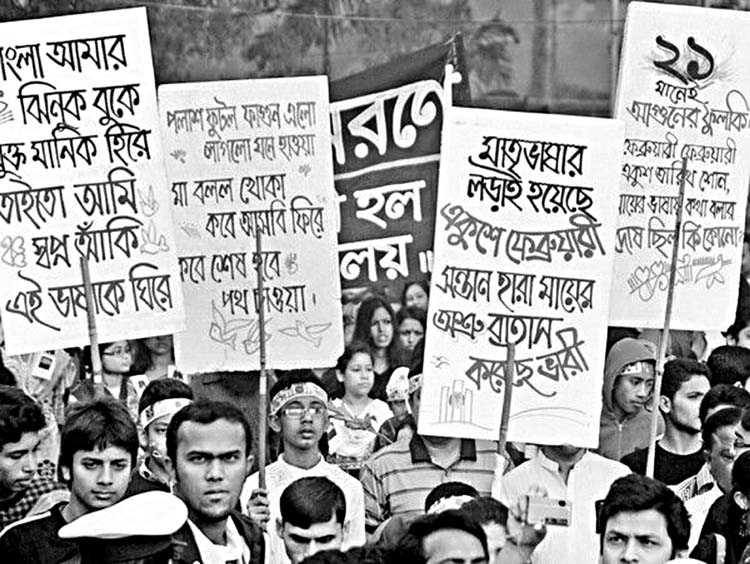 বাংলা আমার
ঝিনুক বুকে
মুক্ত মানিক হিরে
তাইতো আমি
স্বপ্ন আঁকি
এই ভাষাকে ঘিরে
পলাশ ফুটল ফাগুন এলো
লাগলো মনে হাওয়া
মা বলল খোকা
কবে আসবি ফিরে
কবে শেষ হবে
পথ চাওয়া।
হল
মাতৃভাষার
লড়াই হয়েছে
একুশে ফেব্রুয়ারী
সন্তান হারা মায়ের
অশ্রু বাতাস
করেছে ভারী
২১
মানেই
আগুনের ফুলকি
ফেব্রুয়ারী ফেব্রুয়ারী
একুশ তারিখ শোন,
মায়ের ভাষায় কথা বলার
দোষ ছিল কি কোনো